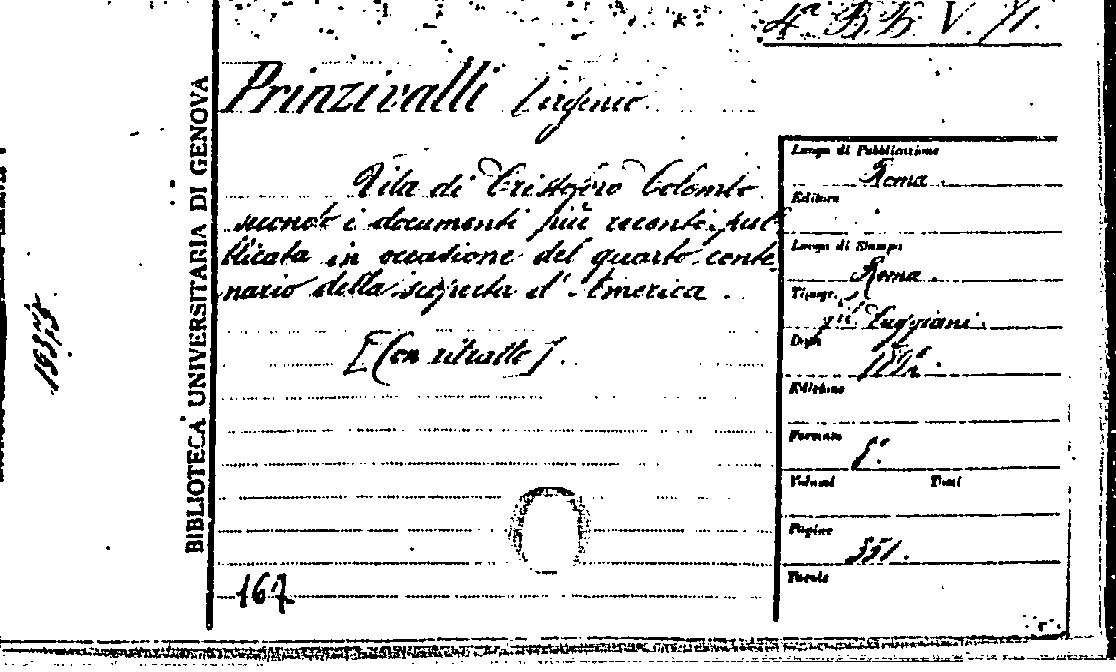 4ª B.B. V. 71.
Prinzivalli Virginio
Vita di Cristoforo Colombo
secondo i documenti più recenti pub-
blicata in occasione del quarto cente-
nario della scoperta d'America.
[Con ritratto].
167
BIBLIOTECA UNIVERSITARIA DI GENOVA
Luogo di Pubblicazione
Roma.
Editore
Luogo di Stampa
Roma.
Tipogr.
Cuggiani.
Data
1892.
Edizione
Formato
8º.
Volumi Tomi
Pagine
351.
Tavole